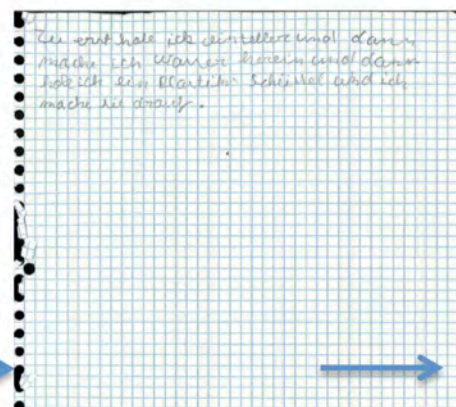 Zu erst hole ich ein teller und dann
mache ich Wasser herein und dann
hole ich ein Plastik Schüssel und ich
mache sie drauf.